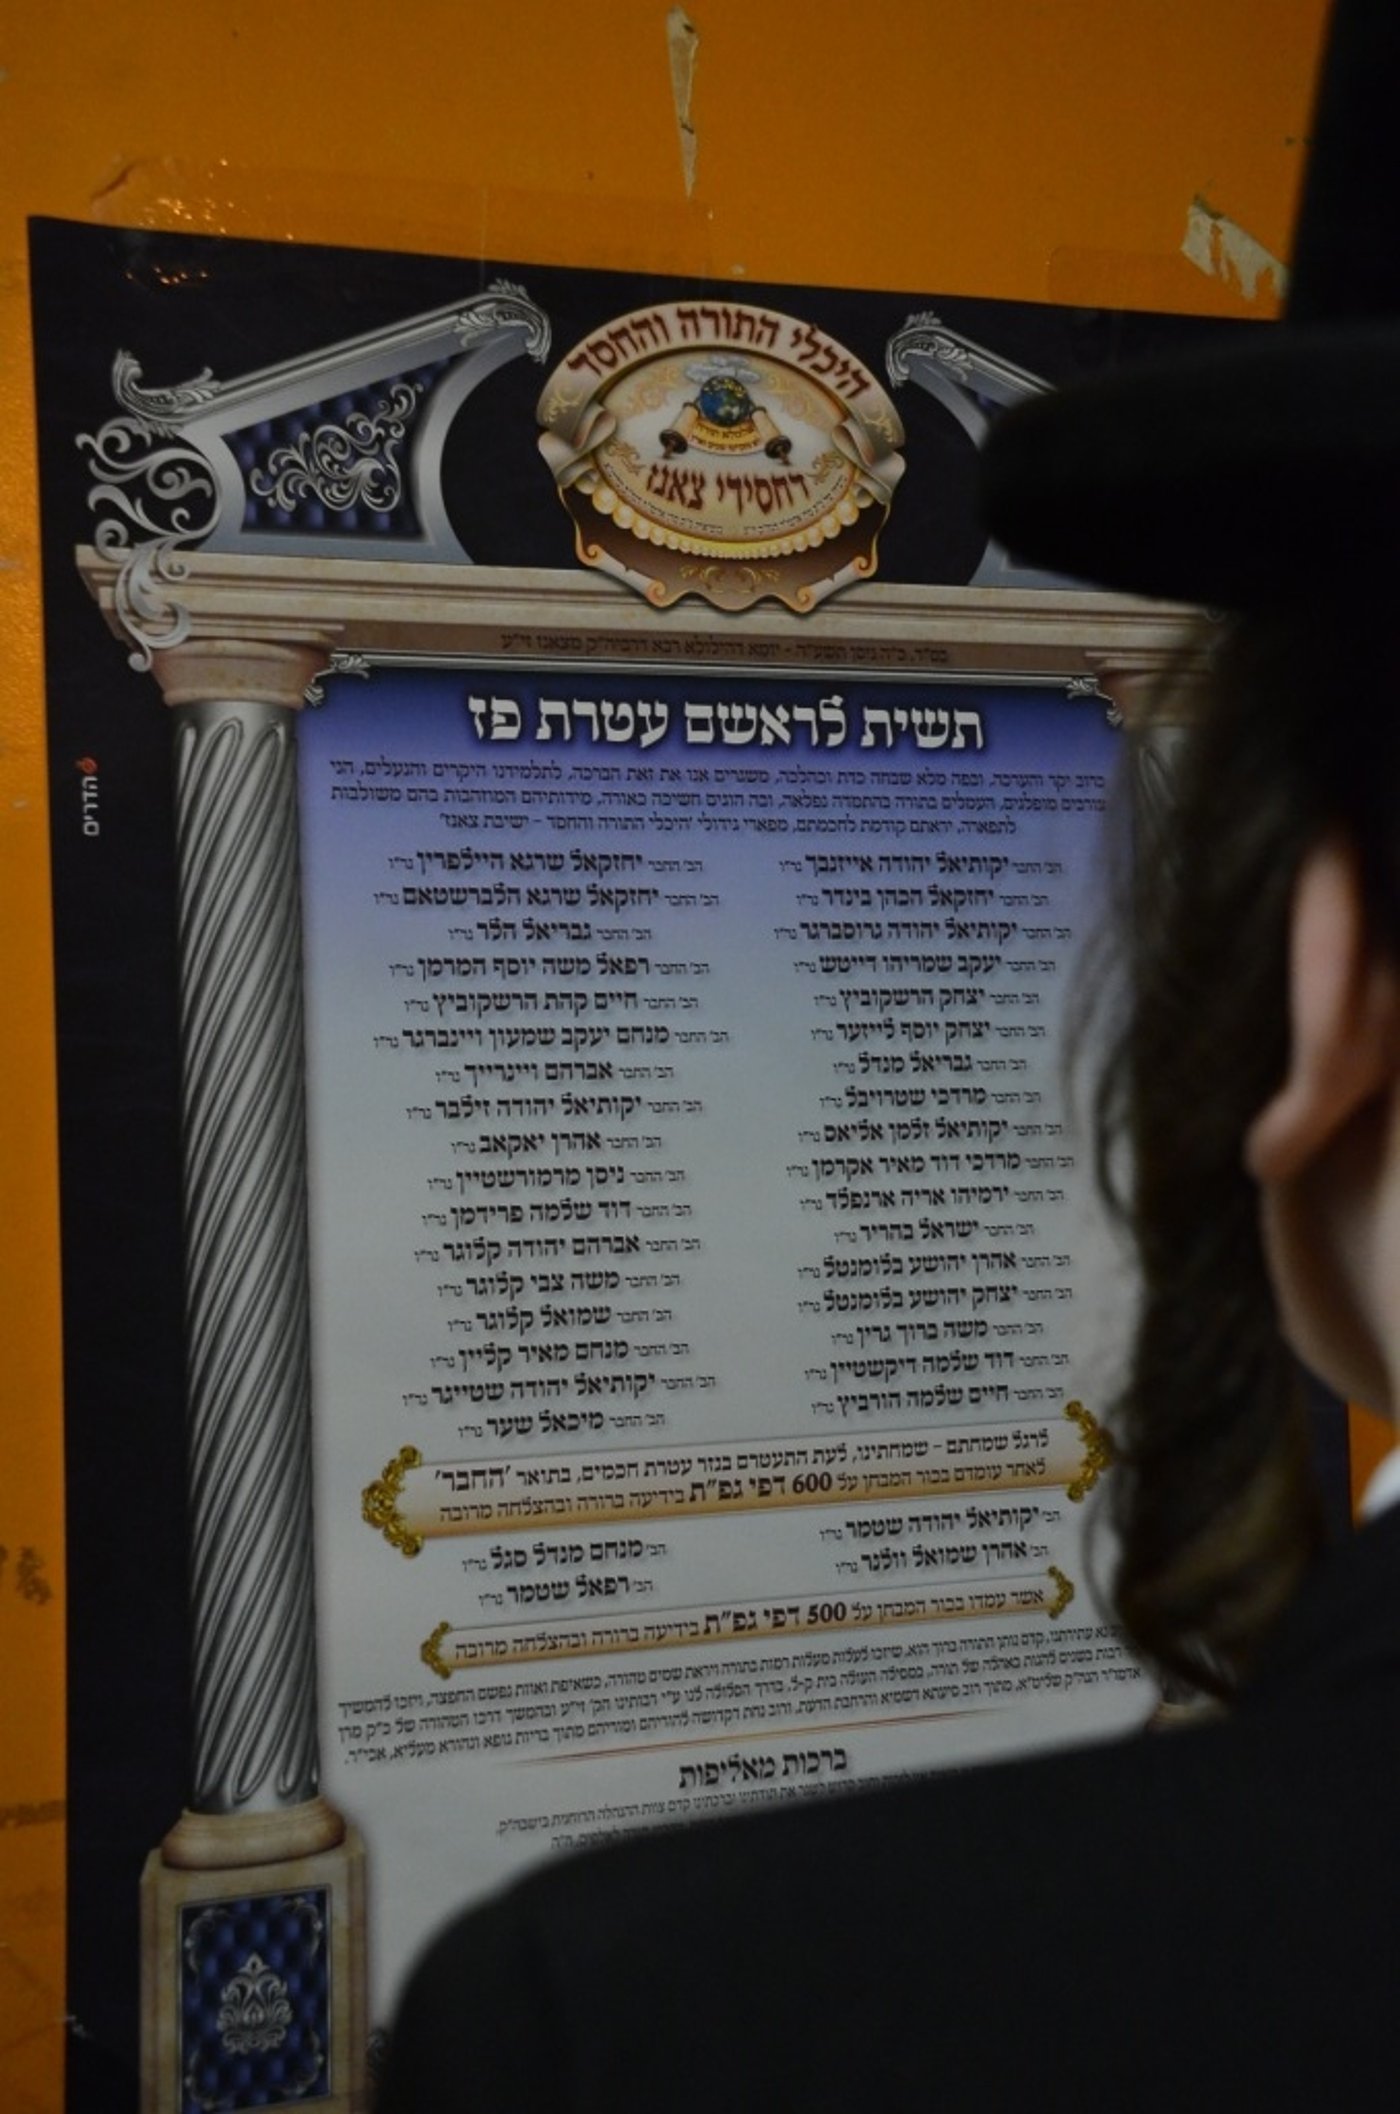 היכלי התורה והחסד
דחסידי צאנז
בס"ד, כ"ה ניסן תשע"ה - יומא דהילולא רבא דרביה"ק מצאנז זי"ע
תשית לראשם עטרת פז
ברוב יקר והערכה, ובפה מלא שבחה כדת וכהלכה, משגרים אנו את זאת הברכה, לתלמידנו היקרים והנעלים, הני
צורבים מופלגים, העמלים בתורה בהתמדה נפלאה, ובה הוגים חשיכה כאורה, מידותיהם המוזהבות בהם משולבות
לתפארה, יראתם קודמת לחכמתם, מפארי גידולי 'היכלי התורה והחסד - ישיבת צאנז'
הב' החבר יקותיאל יהודה אייזנבך נר"ו
הב' החבר יחזקאל הכהן בינדר נר"ו
הב' החבר יקותיאל יהודה גרוסברגר נר"ו
הב' החבר יעקב שמריהו דייטש נר"ו
הב' החבר יצחק הרשקוביץ נר"ו
הב' החבר יצחק יוסף לייזער נר"ו
הב' החבר גבריאל מנדל נר"ו
הב' החבר מרדכי שטרויבל נר"ו
הב' החבר יקותיאל זלמן אליאס נר"ו
הב' החבר מרדכי דוד מאיר אקרמן נר"ו
הב' החבר ירמיהו אריה ארנפלד נר"ו
הב' החבר ישראל בהריר נר"ו
הב' החבר אהרן יהושע בלומנטל נר"ו
הב' החבר יצחק יהושע בלומנטל נר"ו
הב' החבר משה ברוך גרין נר"ו
הב' החבר דוד שלמה דיקשטיין נר"ו
הב' החבר חיים שלמה הורביץ נר"ו
הב' החבר יחזקאל שרגא היילפרין נר"ו
הב' החבר יחזקאל שרגא הלברשטאם נר"ו
הב' החבר גבריאל הלר נר"ו
הב' החבר רפאל משה יוסף המרמן נר"ו
הב' החבר חיים קהת הרשקוביץ נר"ו
הב' החבר מנחם יעקב שמעון ויינברגר נר"ו
הב' החבר אברהם ויינרייך נר"ו
הב' החבר יקותיאל יהודה זילבר נר"ו
הב' החבר אהרן יאקאב נר"ו
הב' החבר ניסן מרמורשטיין נר"ו
הב' החבר דוד שלמה פרידמן נר"ו
הב' החבר אברהם יהודה קלוגר נר"ו
הב' החבר משה צבי קלוגר נר"ו
הב' החבר שמואל קלוגר נר"ו
הב' החבר מנחם מאיר קליין נר"ו
הב' החבר יקותיאל יהודה שטייגר נר"ו
הב' החבר מיכאל שער נר"ו
לרגל שמחתם - שמחתינו, לעת התעטרם בנזר עטרת חכמים, בתואר 'החבר'
לאחר עומדם בכור המבחן על 600 דפי גפ"ת בידיעה ברורה ובהצלחה מרובה
הב' יקותיאל יהודה שטמר נר"ו
הב' אהרן שמואל וולנר נר"ו
הב' מנחם מנדל סגל נר"ו
הב' רפאל שטמר נר"ו
אשר עמדו בכור המבחן על 500 דפי גפ"ת בידיעה ברורה ובהצלחה מרובה
נא עתירתנו, קדם נותן התורה ברוך הוא, שיזכו לעלות מעלות רמות בתורה ויראת שמים טהורה, כשאיפת ואוות נפשם החפצה, ויזכו להמשיך
רבות בשנים להגות באהלה של תורה, במסילה העולה בית ק-ל, בדרך הסלולה לנו ע"י רבותינו הק' זי"ע ובהמשך דרכו הטהורה של כ"ק מרן
אדמו"ר הגה"ק שליט"א, מתוך רוב סיעתא דשמיא והרחבת הדעת, ורוב נחת דקדושה להוריהם ומוריהם מתוך בריות גופא ונהורא מעליא, אכי"ר.
ברכות מאליפות
לשגר את תודתינו וברכתינו קדם צוות ההנהלה הרוחנית בישבה"ק,
הדרים